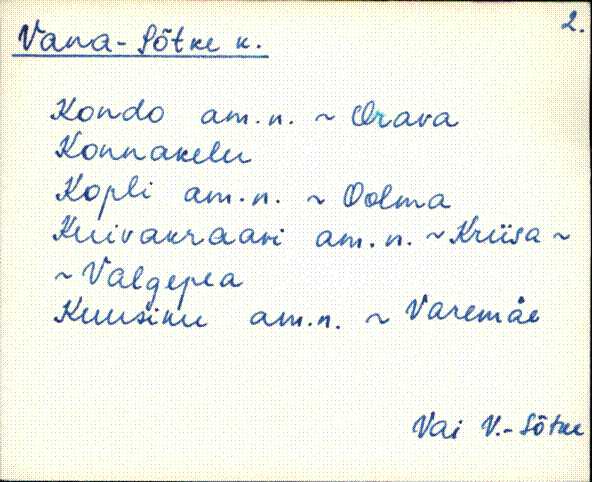 2.
Vana-Sõtke k.
Kondo am.n. ~ Orava
Konnakelu
Kopli am.n. ~ Oolma
Kuivakraavi am.n. ~ Kriisa ~
~ Valgepea
Kuusiku am.n. ~ Varemäe
Vai V.-Sõtke